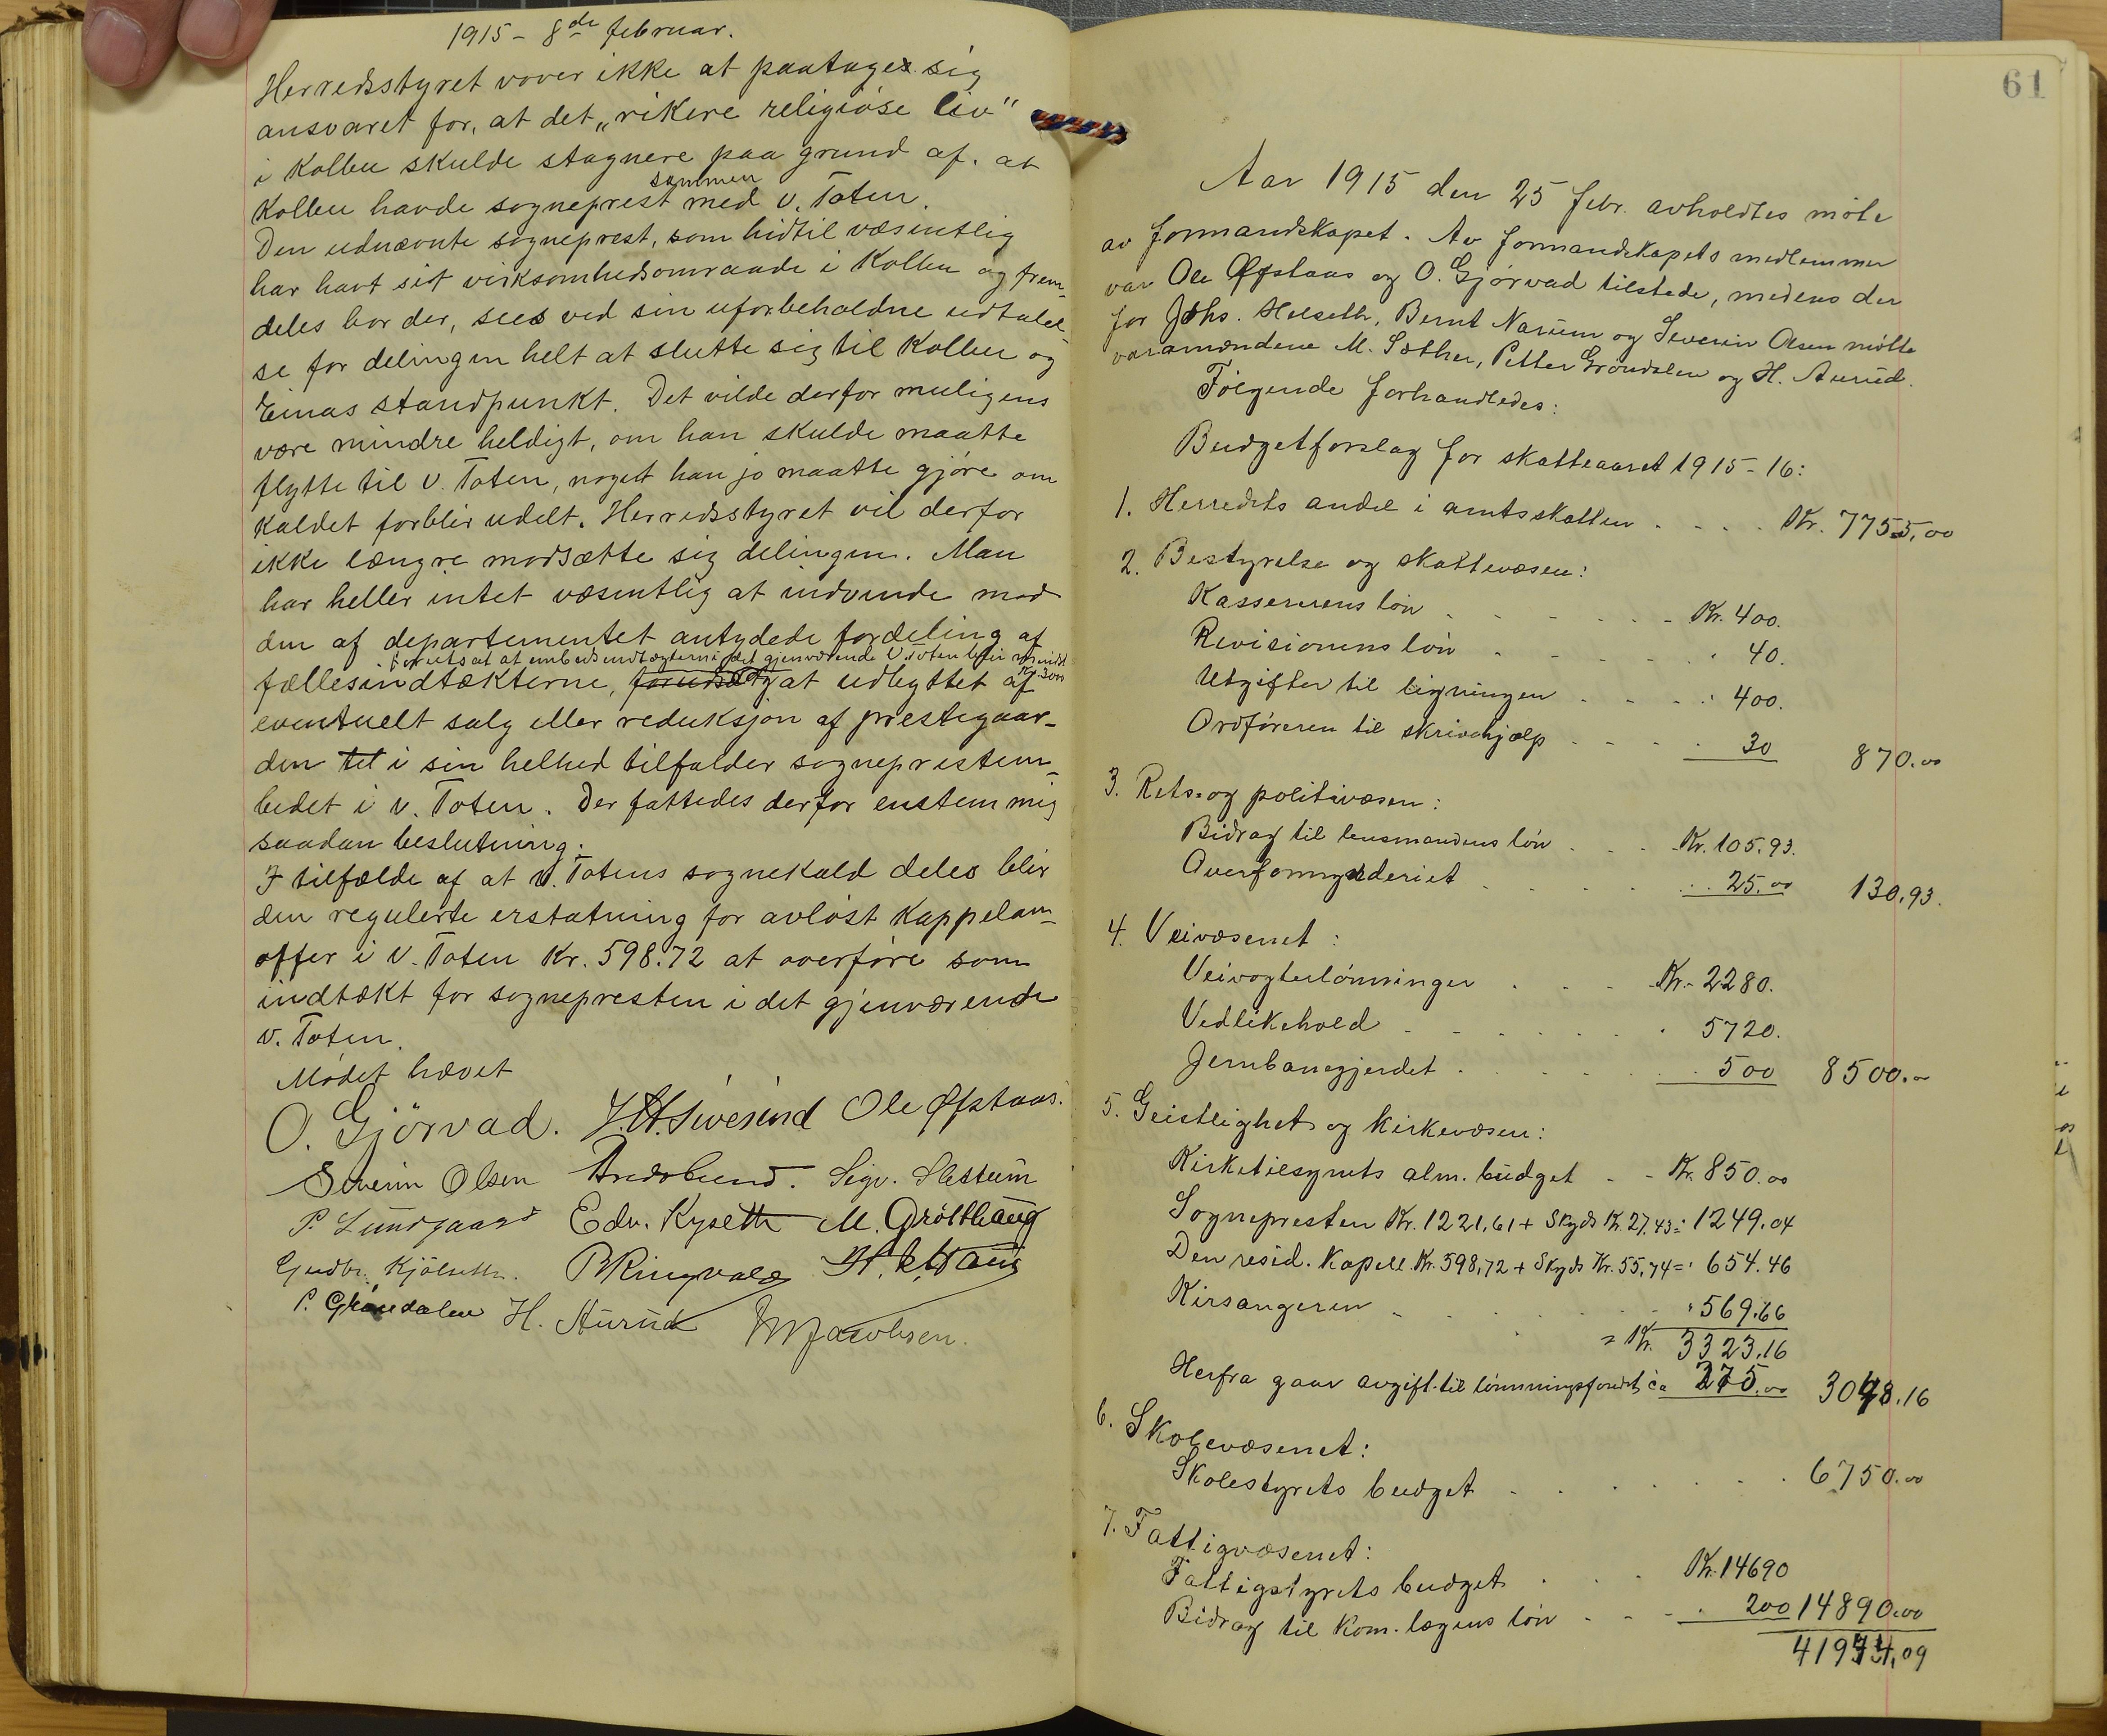 1915 - 8de februar.
Herredsstyret vover ikke at paatage sig
ansvaret for, at det „rikere religiøse liv"
i Kolbu skulde stagnere paa grund af. at
Kolbu havde sogneprest sammen med v. Toten.
Den udnævnte sogneprest, som hidtil væsentlig
har havt sit virksomhedsomraade i Kolbu og frem-
deles bor der, sees ved sin uforbeholdne udtalel-
se for delingen helt at slutte sig til Kolbu og
Einas standpunkt. Det vilde derfor muligens
være mindre heldigt, om han skulde maatte
flytte til V. Toten, noget han jo maatte gjøre om
Kaldet forblir udelt. Herredsstyret vil derfor
ikke længre modsætte sig delingen. Man
har heller intet væsentlig at indvende mod
den af departementet antydede fordeling af
forudsat at embedsindtægterne i det gjenværende V. Toten blir mindst kr. 3000
fællesindtækterne, forudsat at udbyttet af
eventuelt salg eller reduksjon af prestegaar-
den til i sin helhed tilfalder sogneprestem-
bedet i v. Toten. Der fattedes derfor enstemmig
saadan beslutning:
I tilfælde af at V. Totens sognekald deles blir
den regulerte erstatning for avløst Kappelan-
offer i V. Toten Kr. 598.72 at overføre som
indtækt for sognepresten i det gjenværende
V. Toten.
Mødet hævet
O. Gjörvad. J. H. Sivesind Ole Øfstaas.
Severin Olsen Sigv. Slettum
P. Lundgaard Edv. Kyseth M. Grôtthaug
Gudbr. Kjölseth. P Ringvold
P. Grøndalen H. Aurud M Jacobsen.
61
Aar 1915 den 25 febr. avholdtes möte
av formandskapet. Av formandskapets medlemmer
var Ole Øfstaas og O. Gjörvad tilstede, medens der
for Johs. Helseth, Bernt Narum og Severin Olsen mötte
varamændene M. Sæther, Petter Gröndalen og H. Aurud.
Fölgende forhandledes:
Budgetforslag for skatteaaret 1915-16:
1. Herredets andel i amtsskatten . . . . Kr. 7755,00
2. Bestyrelse og skattevæsen:
Kassererens lön . . . . . Kr. 400.
Revisionens lön . . . . . 40.
Utgifter til ligningen . . . . 400.
Ordföreren til skrivehjælp . . . . 30 870.00
3. Rets- og politivæsen:
Bidrag til lensmandens lön . . . Kr. 105.93.
Overformynderiet . . . . . 25.00 130,93.
4. Veivæsenet:
Veivogterlönninger . . . Kr. 2280.
Vedlikehold . . . . . . 5720.
Jernbanegjerdet . . . . . 500 8500.00
5. Geistlighet og kirkevæsen:
Kirketilsynets alm. budget . . Kr. 850.00
Sognepresten Kr. 1221,61 + Skyds Kr. 27,43 = 1249.04
Den resid. Kapell. Kr. 598,72 + Skyds Kr. 55,74 = 654.46
Kirsangeren . . . . . 569.66
= Kr. 3323.16
Herfra gaar avgift til lönningsfondet ca 275.00 3048.16
6. Skolevæsenet:
Skolestyrets budget . . . . . . 6750.00
7. Fattigvæsenet:
Fattigstyrets budget . . . Kr. 14690
Bidrag til Kom. lægens lön . . . . 200 14890.00
41944,09